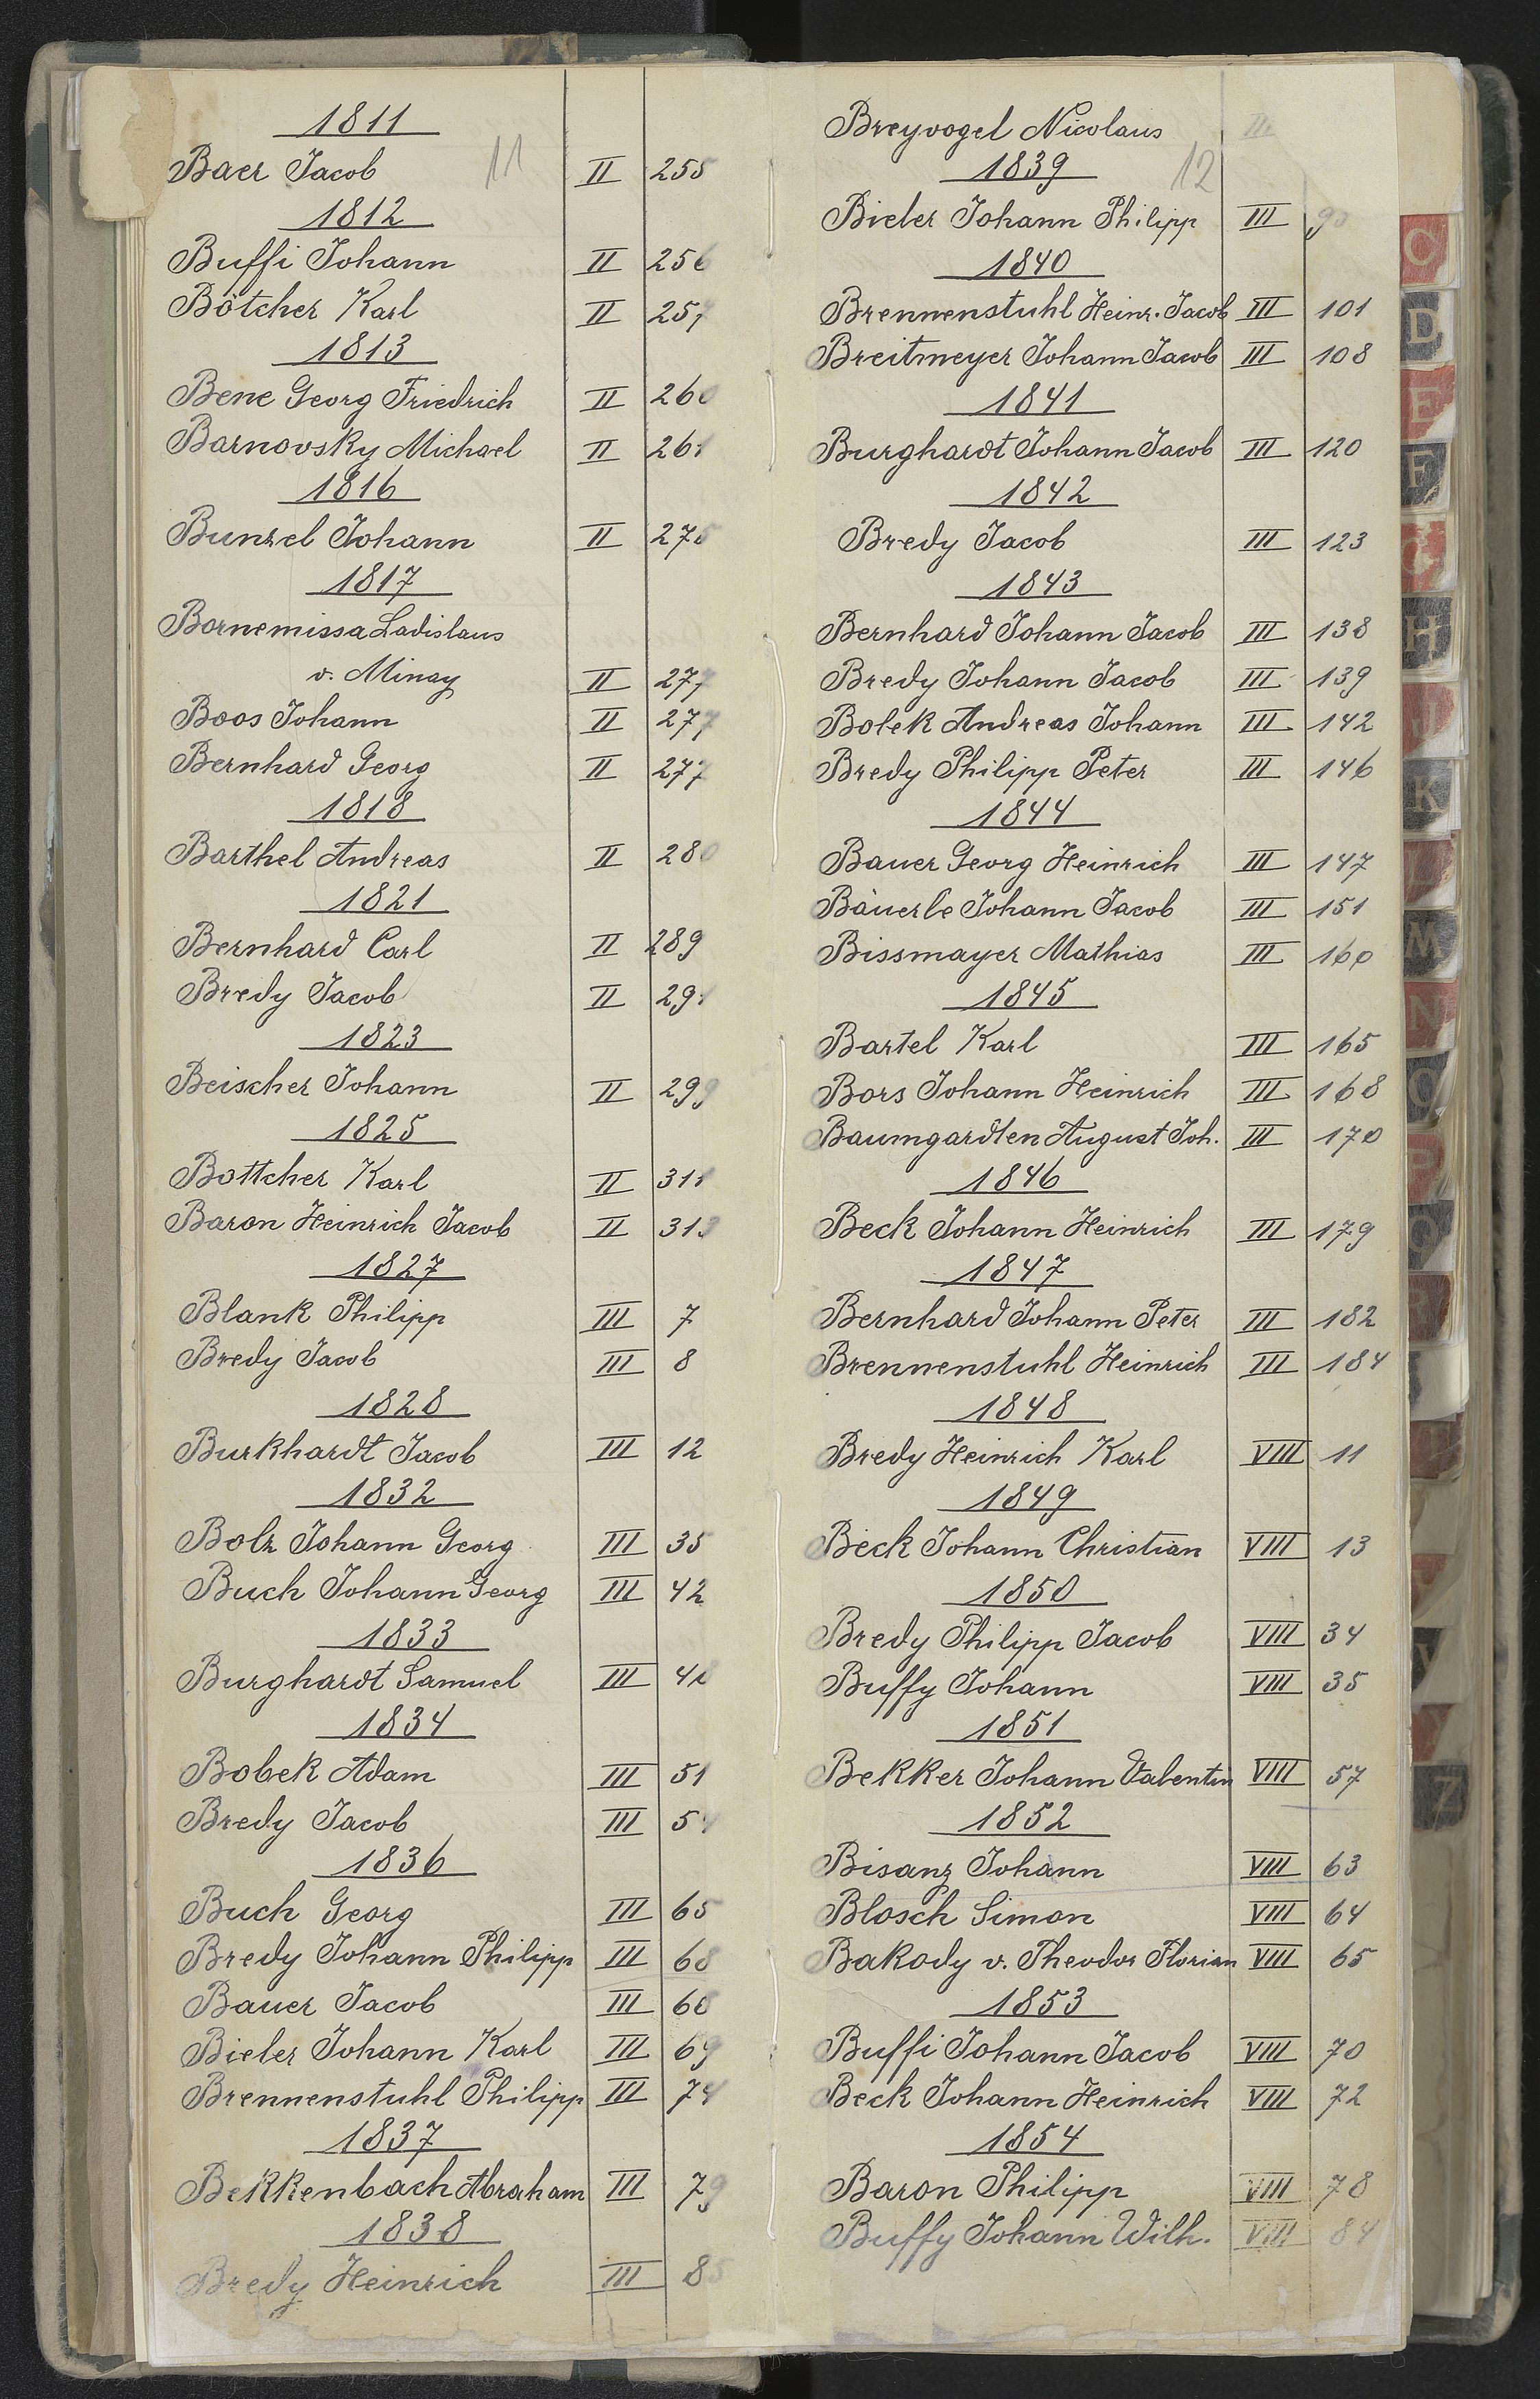 1811
11
Baer Jacob II 255
1812
Buffi Johann II 256
Bötcher Karl II 257
1813
Bene Georg Friedrich II 260
Barnovsky Michael II 261
1816
Bunzel Johann II 275
1817
Bornemissa Ladislaus
v. Minay II 277
Boos Johann II 277
Bernhard Georg II 277
1818
Barthel Andreas II 280
1821
Bernhard Carl II 289
Bredy Jacob II 291
1823
Beischer Johann II 299
1825
Bottcher Karl II 311
Baron Heinrich Jacob II 313
1827
Blank Philipp III 7
Bredy Jacob III 8
1828
Burkhardt Jacob III 12
1832
Bolz Johann Georg III 35
Buch Johann Georg III 42
1833
Burghardt Samuel III 48
1834
Bobek Adam III 51
Bredy Jacob III 54
1836
Buch Georg III 65
Bredy Johann Philipp III 68
Bauer Jacob III 68
Bieler Johann Karl III 69
Brennenstuhl Philipp III 74
1837
Bekkenbach Abraham III 79
1838
Bredy Heinrich III 85
Breyvogel Nicolaus III
1839
12
Bieler Johann Philipp III 90
1840
Brennenstuhl Heinr. Jacob III 101
Breitmeyer Johann Jacob III 108
1841
Burghardt Johann Jacob III 120
1842
Bredy Jacob III 123
1843
Bernhard Johann Jacob III 138
Bredy Johann Jacob III 139
Bolek Andreas Johann III 142
Bredy Philipp Peter III 146
1844
Bauer Georg Heinrich III 147
Bäuerle Johann Jacob III 151
Bissmayer Mathias III 160
1845
Bartel Karl III 165
Bors Johann Heinrich III 168
Baumgardten August Joh. III 170
1846
Beck Johann Heinrich III 179
1847
Bernhard Johann Peter III 182
Brennenstuhl Heinrich III 184
1848
Bredy Heinrich Karl VIII 11
1849
Beck Johann Christian VIII 13
1850
Bredy Philipp Jacob VIII 34
Buffy Johann VIII 35
1851
Bekker Johann Valentin VIII 57
1852
Bisanz Johann VIII 63
Blosch Simon VIII 64
Bakody v. Theodor Florian VIII 65
1853
Buffi Johann Jacob VIII 70
Beck Johann Heinrich VIII 72
1854
Baron Philipp VIII 78
Buffy Johann Wilh. VIII 84
C
D
E
F
G
H
K
M
N
O
P
Q
Z